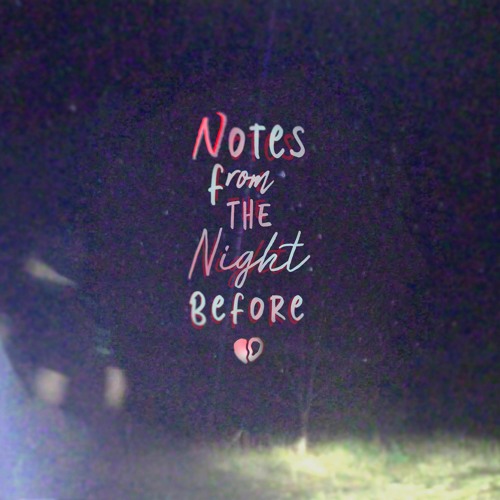 Notes
from
THE
Night
BeFORe